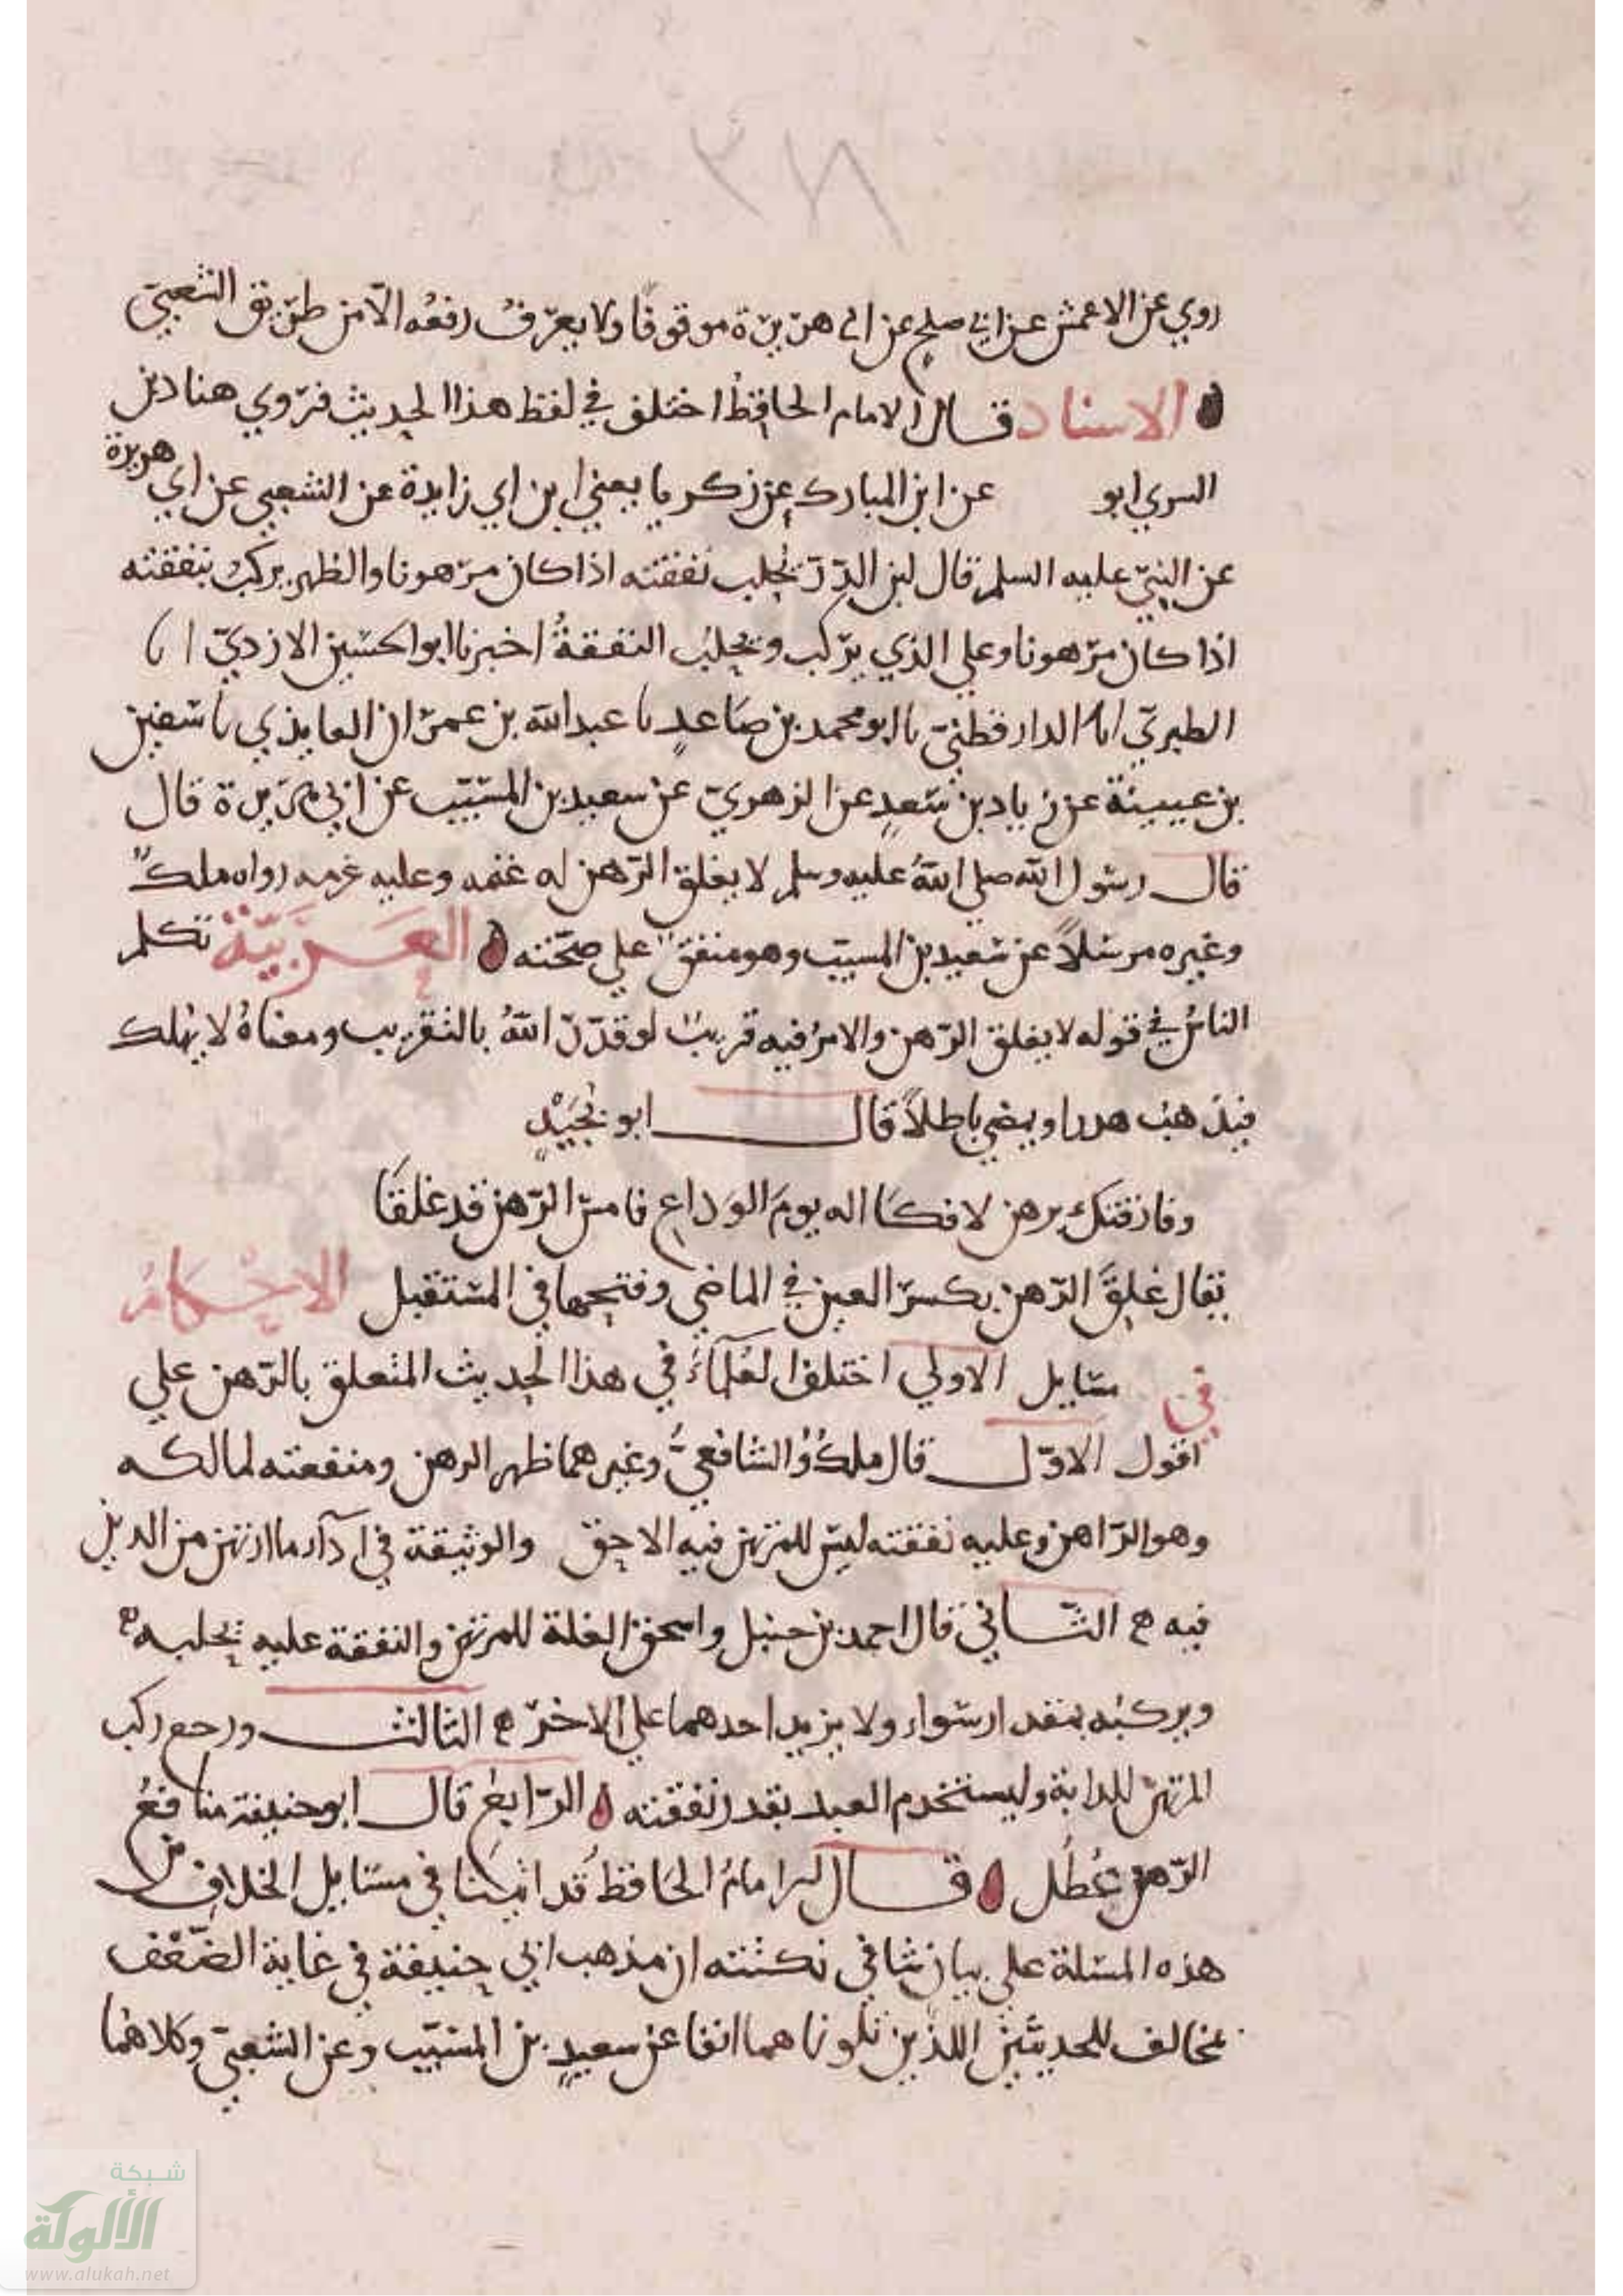 ٢٧٨
روي عن الاعمش عن ابي صلح عن ابي هريرة موقوفا ولا يعرف رفعه الا من طريق الشعبي
الاسناد قال الامام الحافظ اختلف في لفظ هذا الحديث فروي هناد بن
السري ابو عن ابن المبارك عن زكريا يعني ابن ابي زايدة عن الشعبي عن ابي هريرة
عن النبيّ عليه السلم قال لبن الدّرّ يُحلب بنفقته اذا كان مرهونا والظهر يركبُ بنفقته
اذا كان مرهونا وعلي الذي يركب ويحلبُ النفقةُ اخبرنا ابو الحسين الازديّ انا
الطبريّ انا الدارقطنيّ نا ابو محمد بن صاعدٍ نا عبد الله بن عمران العابدي نا سفين
بن عيينة عن زياد بن سعدٍ عن الزهريّ عن سعيد بن المسيّب عن ابي هريرة قال
قال رسول الله صلي اللهُ عليه وسلم لا يغلق الرّهن له غنمه وعليه غرمه رواه ملكٌ
وغيره مرسلاً عن سعيد بن المسيب وهو متفقٌ علي صحّته العَرَبيّةُ تكلم
الناسُ في قوله لا يغلق الرّهن والامرُ فيه قريبٌ لو قدّرَ اللهُ بالتقريب ومعناهُ لا يهلك
فيذهبُ هدرا ويمضي باطلاً قال ابو نُجَيْدٍ
وفارقتك برهن لا فكاك له يوم الوداع فامسي الرّهن قد غلقا
يقال غلِقَ الرّهن بكسر العين في الماضي وفتحها في المستقبل الاحْكامُ
في مسايل الاولي اختلف العُلمآءُ في هذا الحديث المتعلق بالرّهن علي
اقول الاوّل قال ملكٌ والشافعيُّ وغيرهما ظهر الرهن ومنفعته لمالكه
وهو الرّاهن وعليه نفقته ليس للمرتهن فيه الا حق والوثيقة في اَدآء ما ارتهن من الدين
فيه الثّاني قال احمد بن حنبل واسحق الغلة للمرتهن والنفقة عليه يحلبه
ويركبُه بمقدار سَواء ولا يزيد احدهما علي الاخر الثالث ورجع ركب
المرتهن للدابة وليستخدم العبد بقدر نفقته الرّابعُ قال ابو حنيفة منافعُ
الرّهن عُطُل قال الامامُ الحَافظُ قد اتينا في مسَايل الخلاف من
هذه المسئلة علي بيان شافي نكتته ان مذهب ابي حنيفة في غاية الضّعْف
مخالف للحديثين اللذين تلوناهما انفا عن سعيدٍ بن المسيّب وعن الشعبيّ وكلاهما
شبكة
الألوكة
www.alukah.net